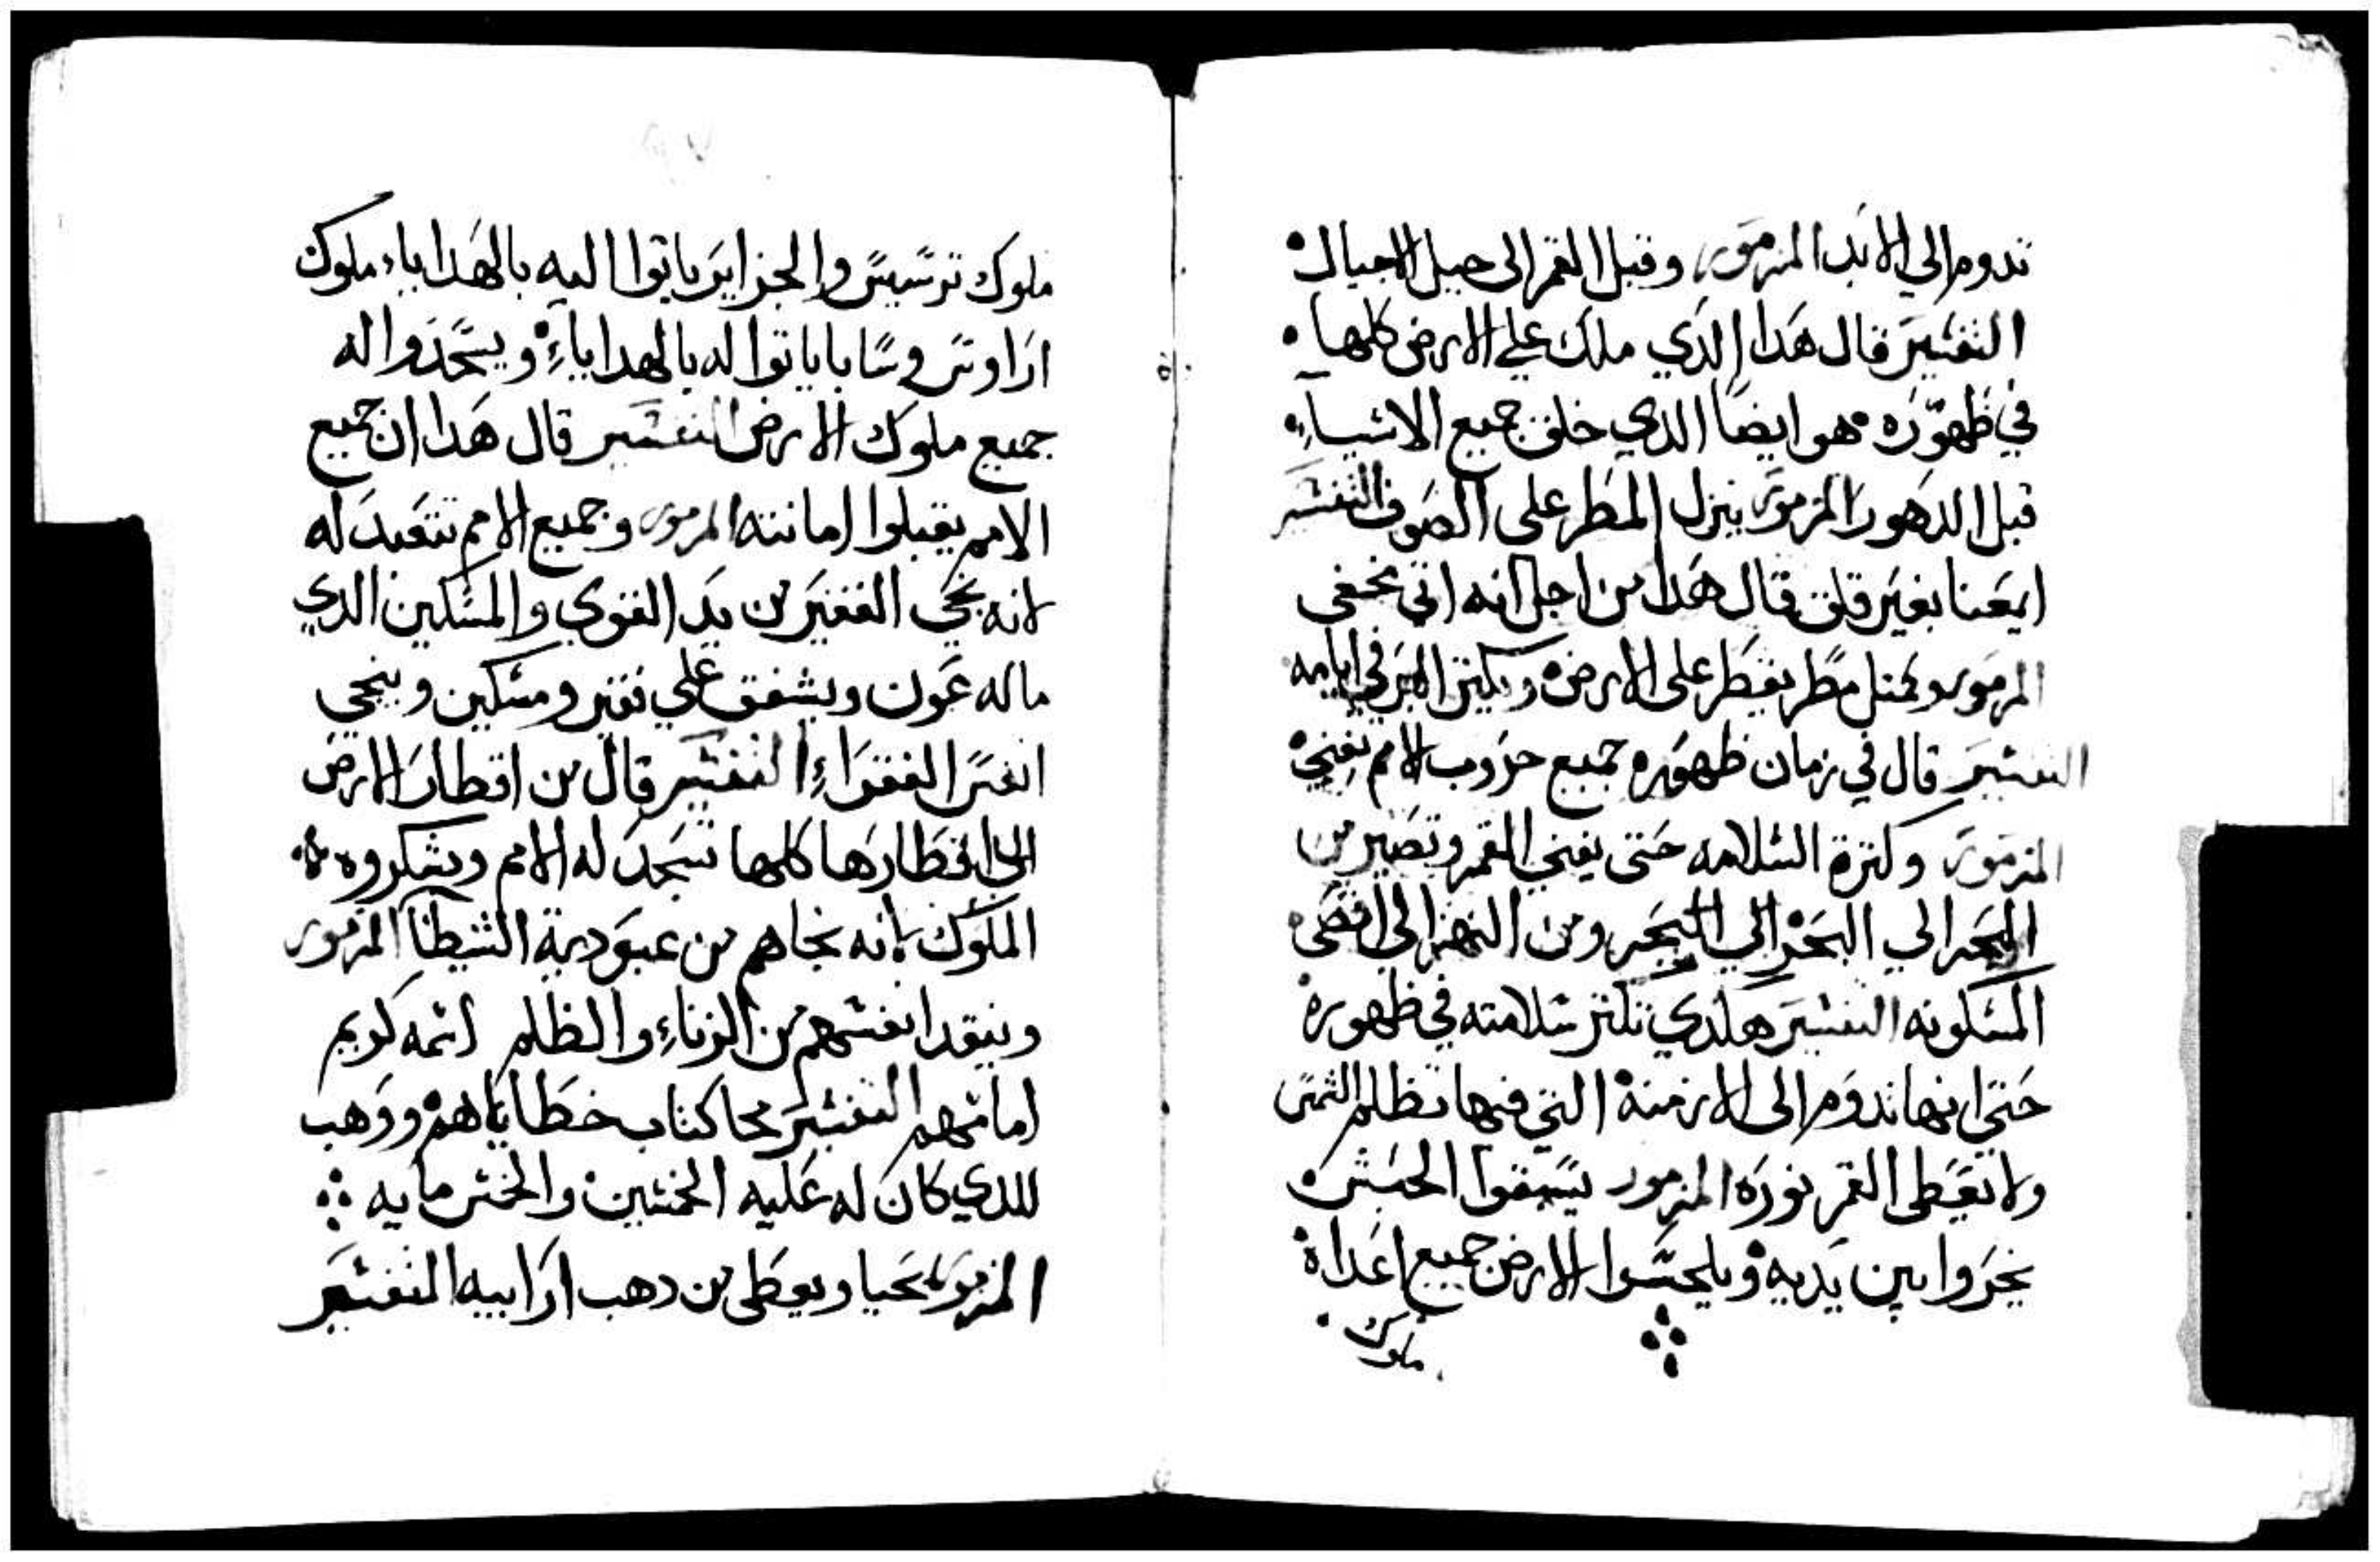 تدوم الي الابد المزمور وقبل القمر الى جيل الاجيال
التفسير قال هدا الدي ملك علي الارض كلها
في ظهوره هو ايضا الدي خلق جميع الاشياء
قبل الدهور المزمور ينزل المطر على الصوف التفسير
ايمعنا بغير قلق قال هدا من اجل انه اتي بخفى
المزمور وكمتل مطر يقطر على الارض ويكتر البر في ايامه
التفسير قال في زمان ظهوره جميع حروب الامم يفني
المزمور وكترة السلامه حتى يفني القمر وتصير من
البحر الي البحر الي البحر ومن النهر الي اقصى
المسكونه التفسير هكدي تكتر سلامته في ظهوره
حتي انها تدوم الى الازمنة التي فيها تظلم الشمس
ولا يعطى القمر نوره المزمور يسبقوا الحبش
يخروا بين يديه ويلحسوا الارض جميع اعداه
ملوك
ملوك ترسيس والجزاير ياتوا اليه بالهدايا ملوك
اراوس وسابا ياتوا له بالهداياء ويسجدوا له
جميع ملوك الارض التفسير قال هدا ان جميع
الامم يقبلوا امانته المزمور وجميع الامم تتعبد له
لانه نجي الفقير من يد القوي والمسكين الدي
ماله عون ويشفق علي فقير ومسكين وينجي
انفس الفقراء التفسير قال من اقطار الارض
الي اقطارها كلها تسجد له الامم ويشكروه
الملوك لانه نجاهم من عبودية الشيطان المزمور
وينقد انفسهم من الرباء والظلم اسمه كريم
امامهم التفسير محا كتاب خطاياهم ووهب
للدي كان له عليه الخمسين والخمس مايه
المزمور يحيا ويعطى من دهب ارابيه التفسير